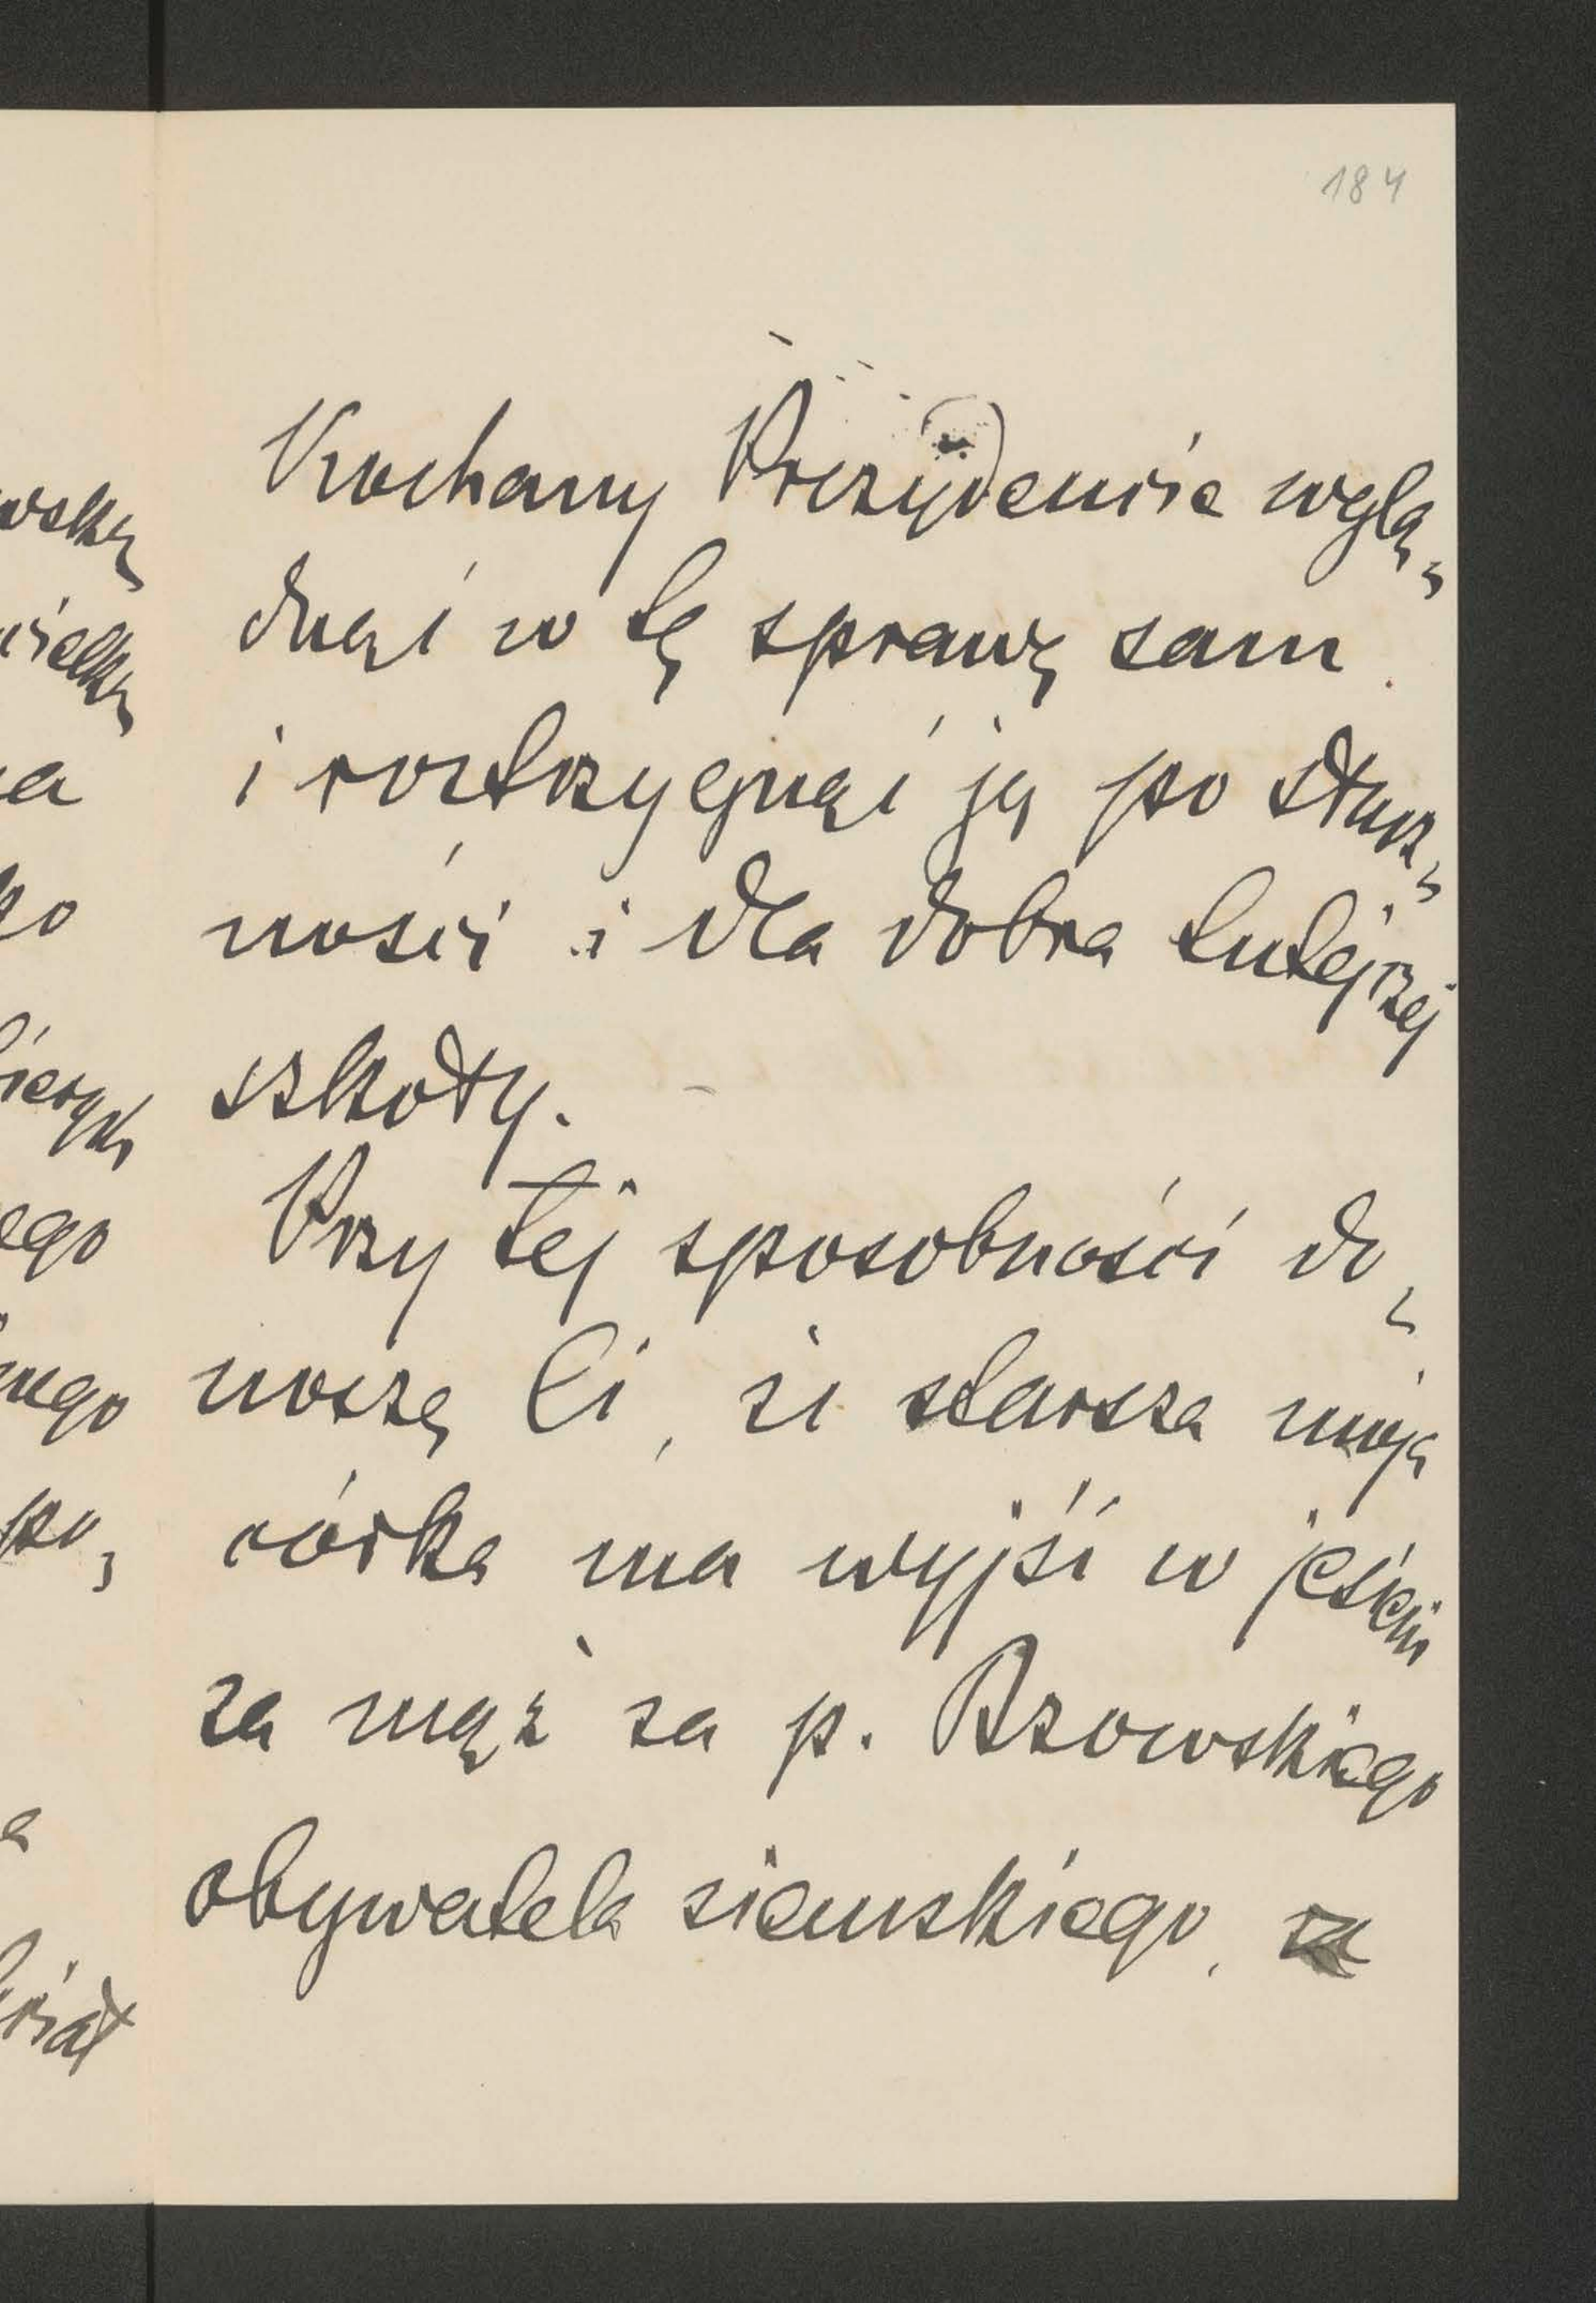 184
Kochany Prezydencie wglą„
dnąć w tę sprawę sam
i roztrzygnąć ją po słusz„
ności i dla dobra tutejszej
szkoły.
Przy tej sposobności do„
noszę Ci, że starsza moja
córka ma wyjść w jesieni
za mąż za p. Bzowskiego
obywatela ziemskiego, za